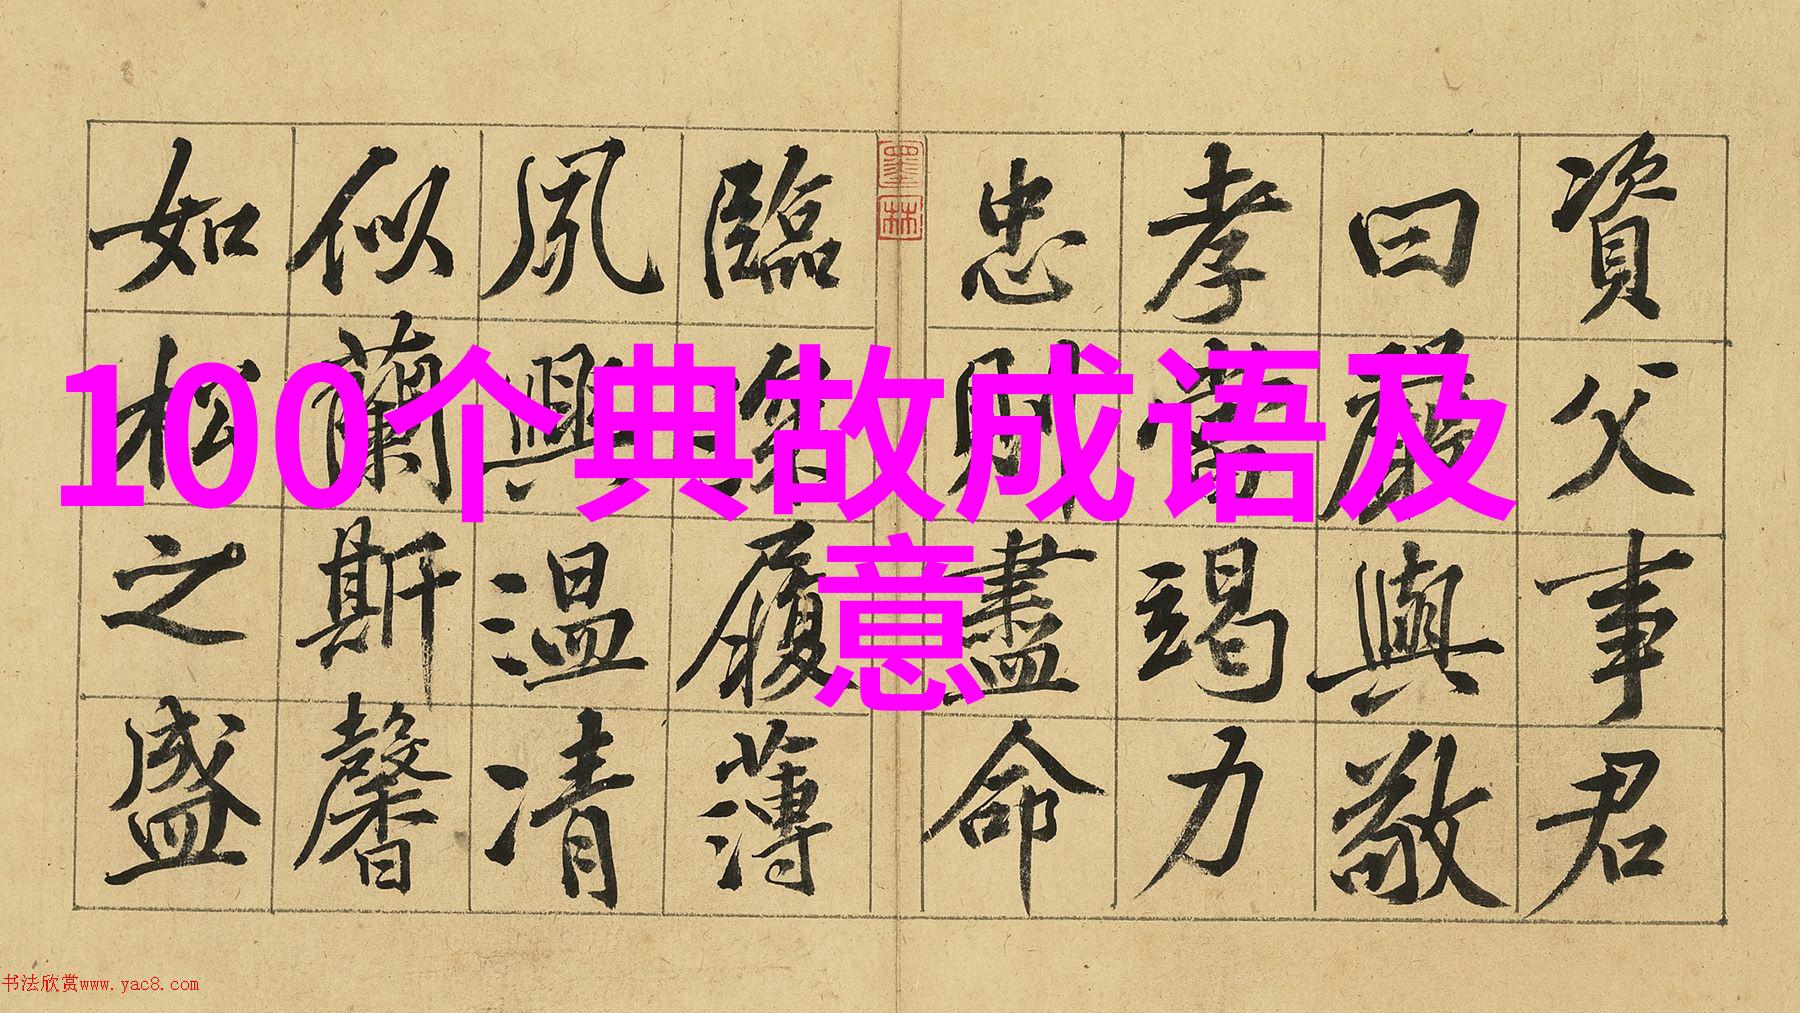 資父事君
曰嚴與敬
孝當竭力
忠則盡命
墨林
臨深履薄
夙興温凊
似蘭斯馨
如松之盛
100个典故成语及
意
书法欣赏www.yac8.com